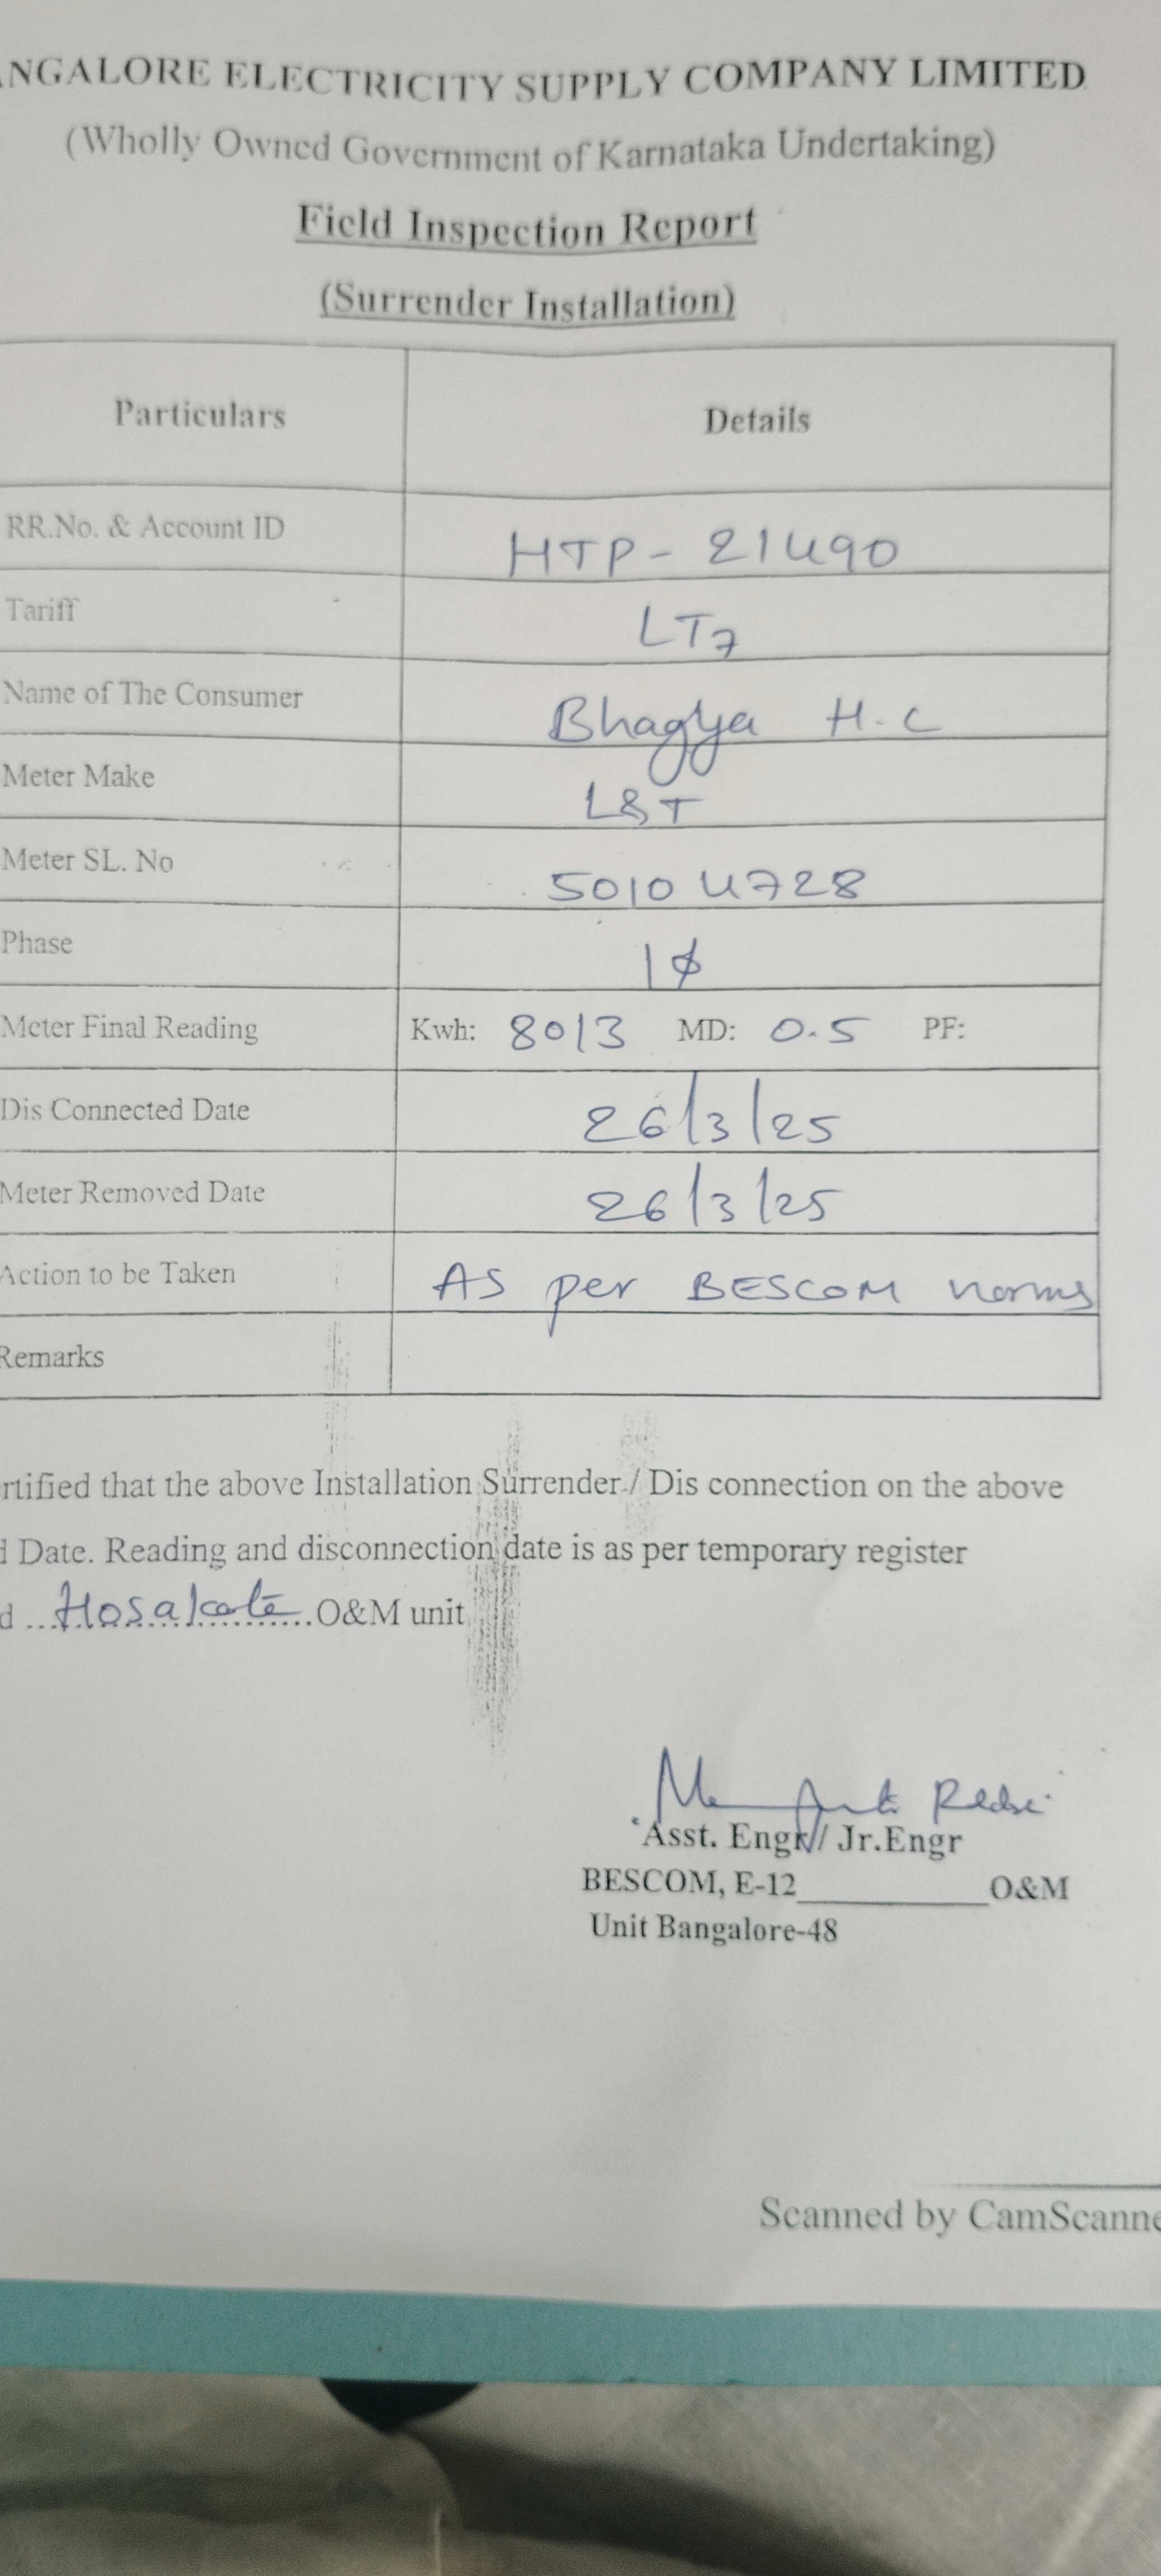 NGALORE ELECTRICITY SUPPLY COMPANY LIMITED
(Wholly Owned Government of Karnataka Undertaking)
Field Inspection Report
(Surrender Installation)
Particulars Details
RR.No. & Account ID HTP - 21490
Tariff LT7
Name of The Consumer Bhagya H.C
Meter Make L&T
Meter SL. No 50104728
Phase 1ϕ
Meter Final Reading Kwh: 8013 MD: 0.5 PF:
Dis Connected Date 26/3/25
Meter Removed Date 26/3/25
Action to be Taken As per BESCOM norms
Remarks
rtified that the above Installation Surrender / Dis connection on the above
d Date. Reading and disconnection date is as per temporary register
d ...Hosakote...O&M unit
Asst. Engr/ Jr.Engr
BESCOM, E-12__________O&M
Unit Bangalore-48
Scanned by CamScanne